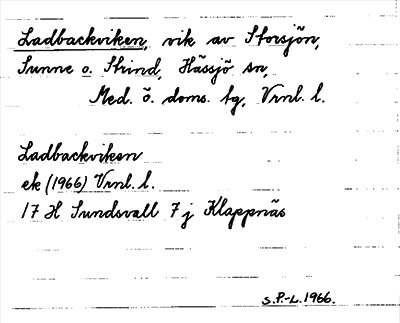 Ladbackviken, vik av Storsjön,
Sunne o. Strind, Hässjö sn,
Med. ö. doms. tg, Vrnl. l.
Ladbackviken
ek (1966) Vrnl. l.
17 H Sundsvall 7 j Klappnäs
S.P.-L. 1966.